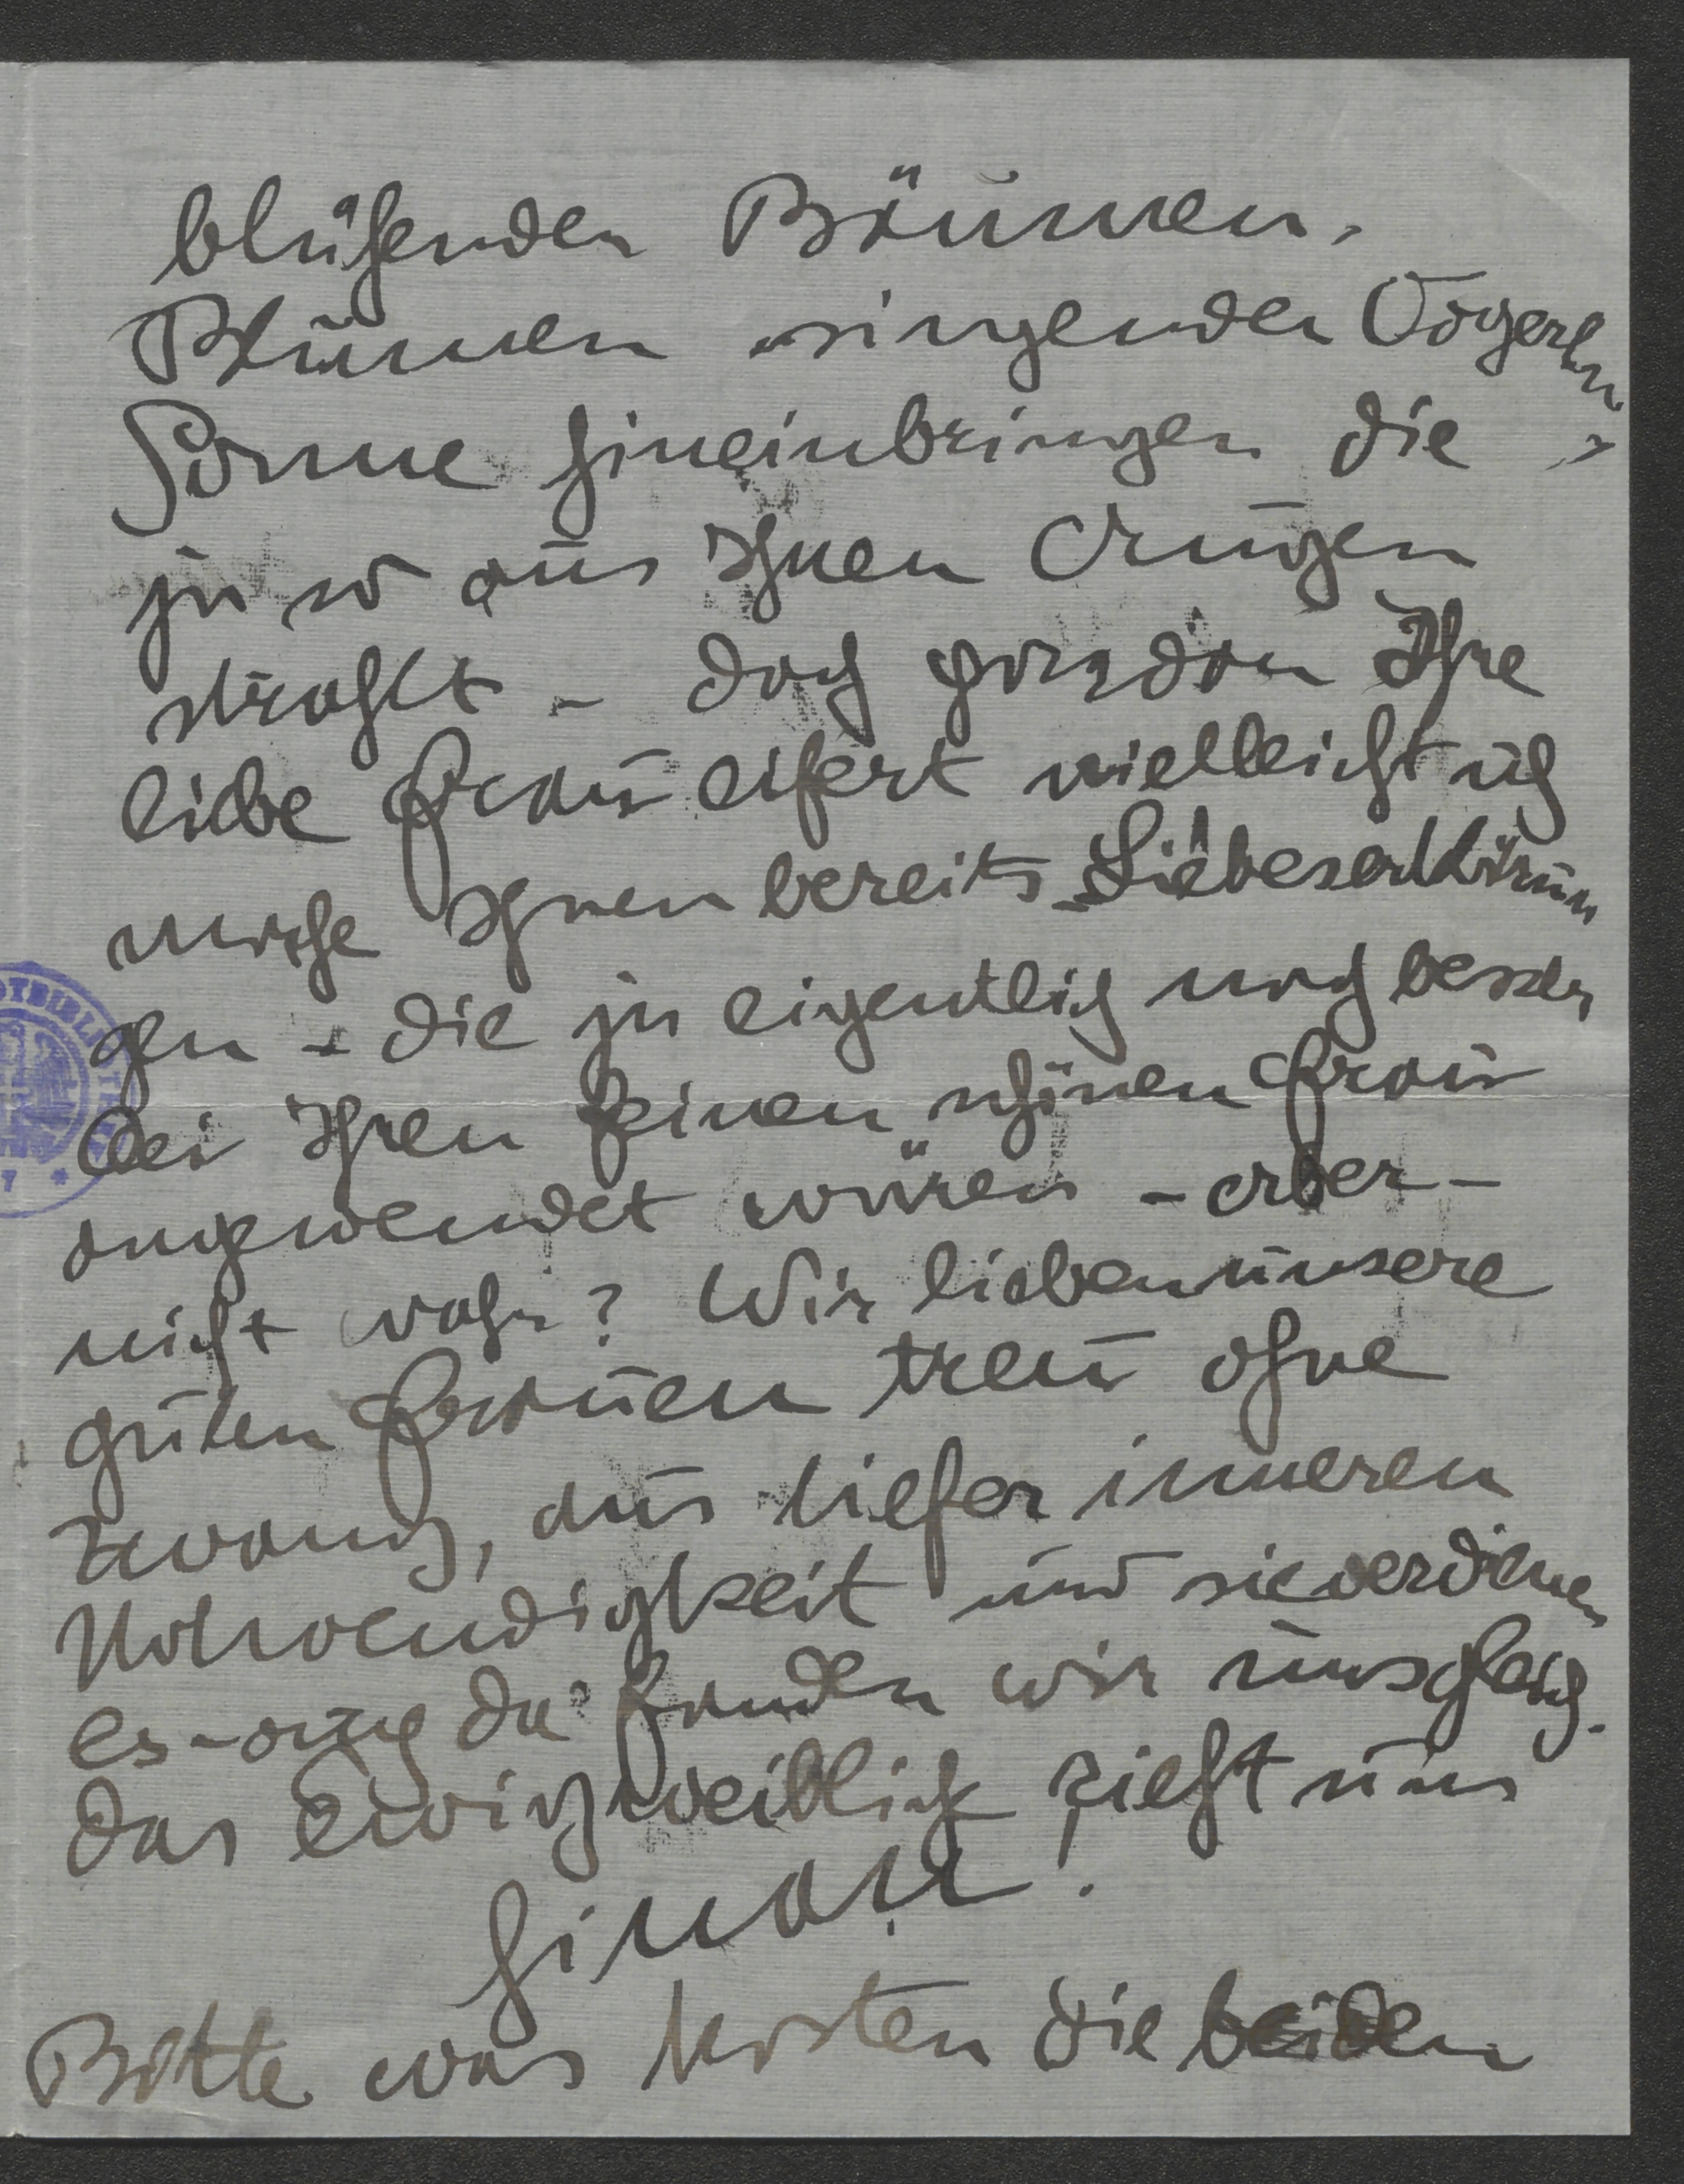 blühenden Bäumen,
Blumen singenden Vögerln,
Sonne hineinbringen die
ja so aus Ihnen Augen
strahlt – doch pardon Ihre
liebe Frau eifert vielleicht ich
mache Ihnen bereits Liebeserklärun
gen – die ja eigentlich noch besser
bei Ihren feinen schönen Frau
angewendet wären – aber –
nicht wahr? Wir lieben unsere
guten Frauen treu ohne
Zwang, aus tiefer inneren
Notwendigkeit und sie verdienen
es – auch da fanden wir uns gleich.
das Ewig weiblich zieht uns
hinan!
Bitte was kosten die beiden